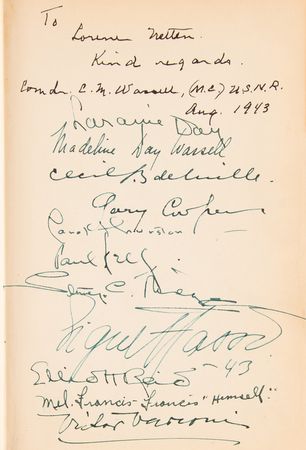 To
Lorene Netten.
Kind regards.
Comdr. C. M. Wassell, (M.C.) U.S.N.R.
Aug. 1943
Laraine Day
Madeline Day Wassell
Cecil B deMille.
Gary Cooper
Carol Thurston
Paul Kelly
C.
Signe Hasso
Elliott Reid - 43
Mel. Francis - Francis "Himself".
Victor Varconi